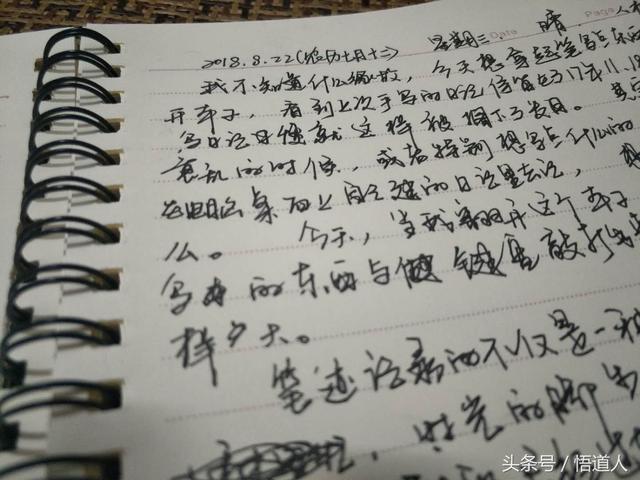 2018.8.22(农历七月十二) 星期三 Date 晴 Page
我不知道什么 ，今天想拿起笔写点东西
开本子，看到上次手写的日记停留在17年11.18
写日记习惯就这样被搁下了数月。其实
意乱的时候，或者特别想写点什么的
在电脑桌面上 建的日记里去记，
么。 今天，当我翻开这个本子
写出的东西与健键盘敲打出
样多大。
笔迹记录的不仅是一种
，时光的脚
头条号／悟道人